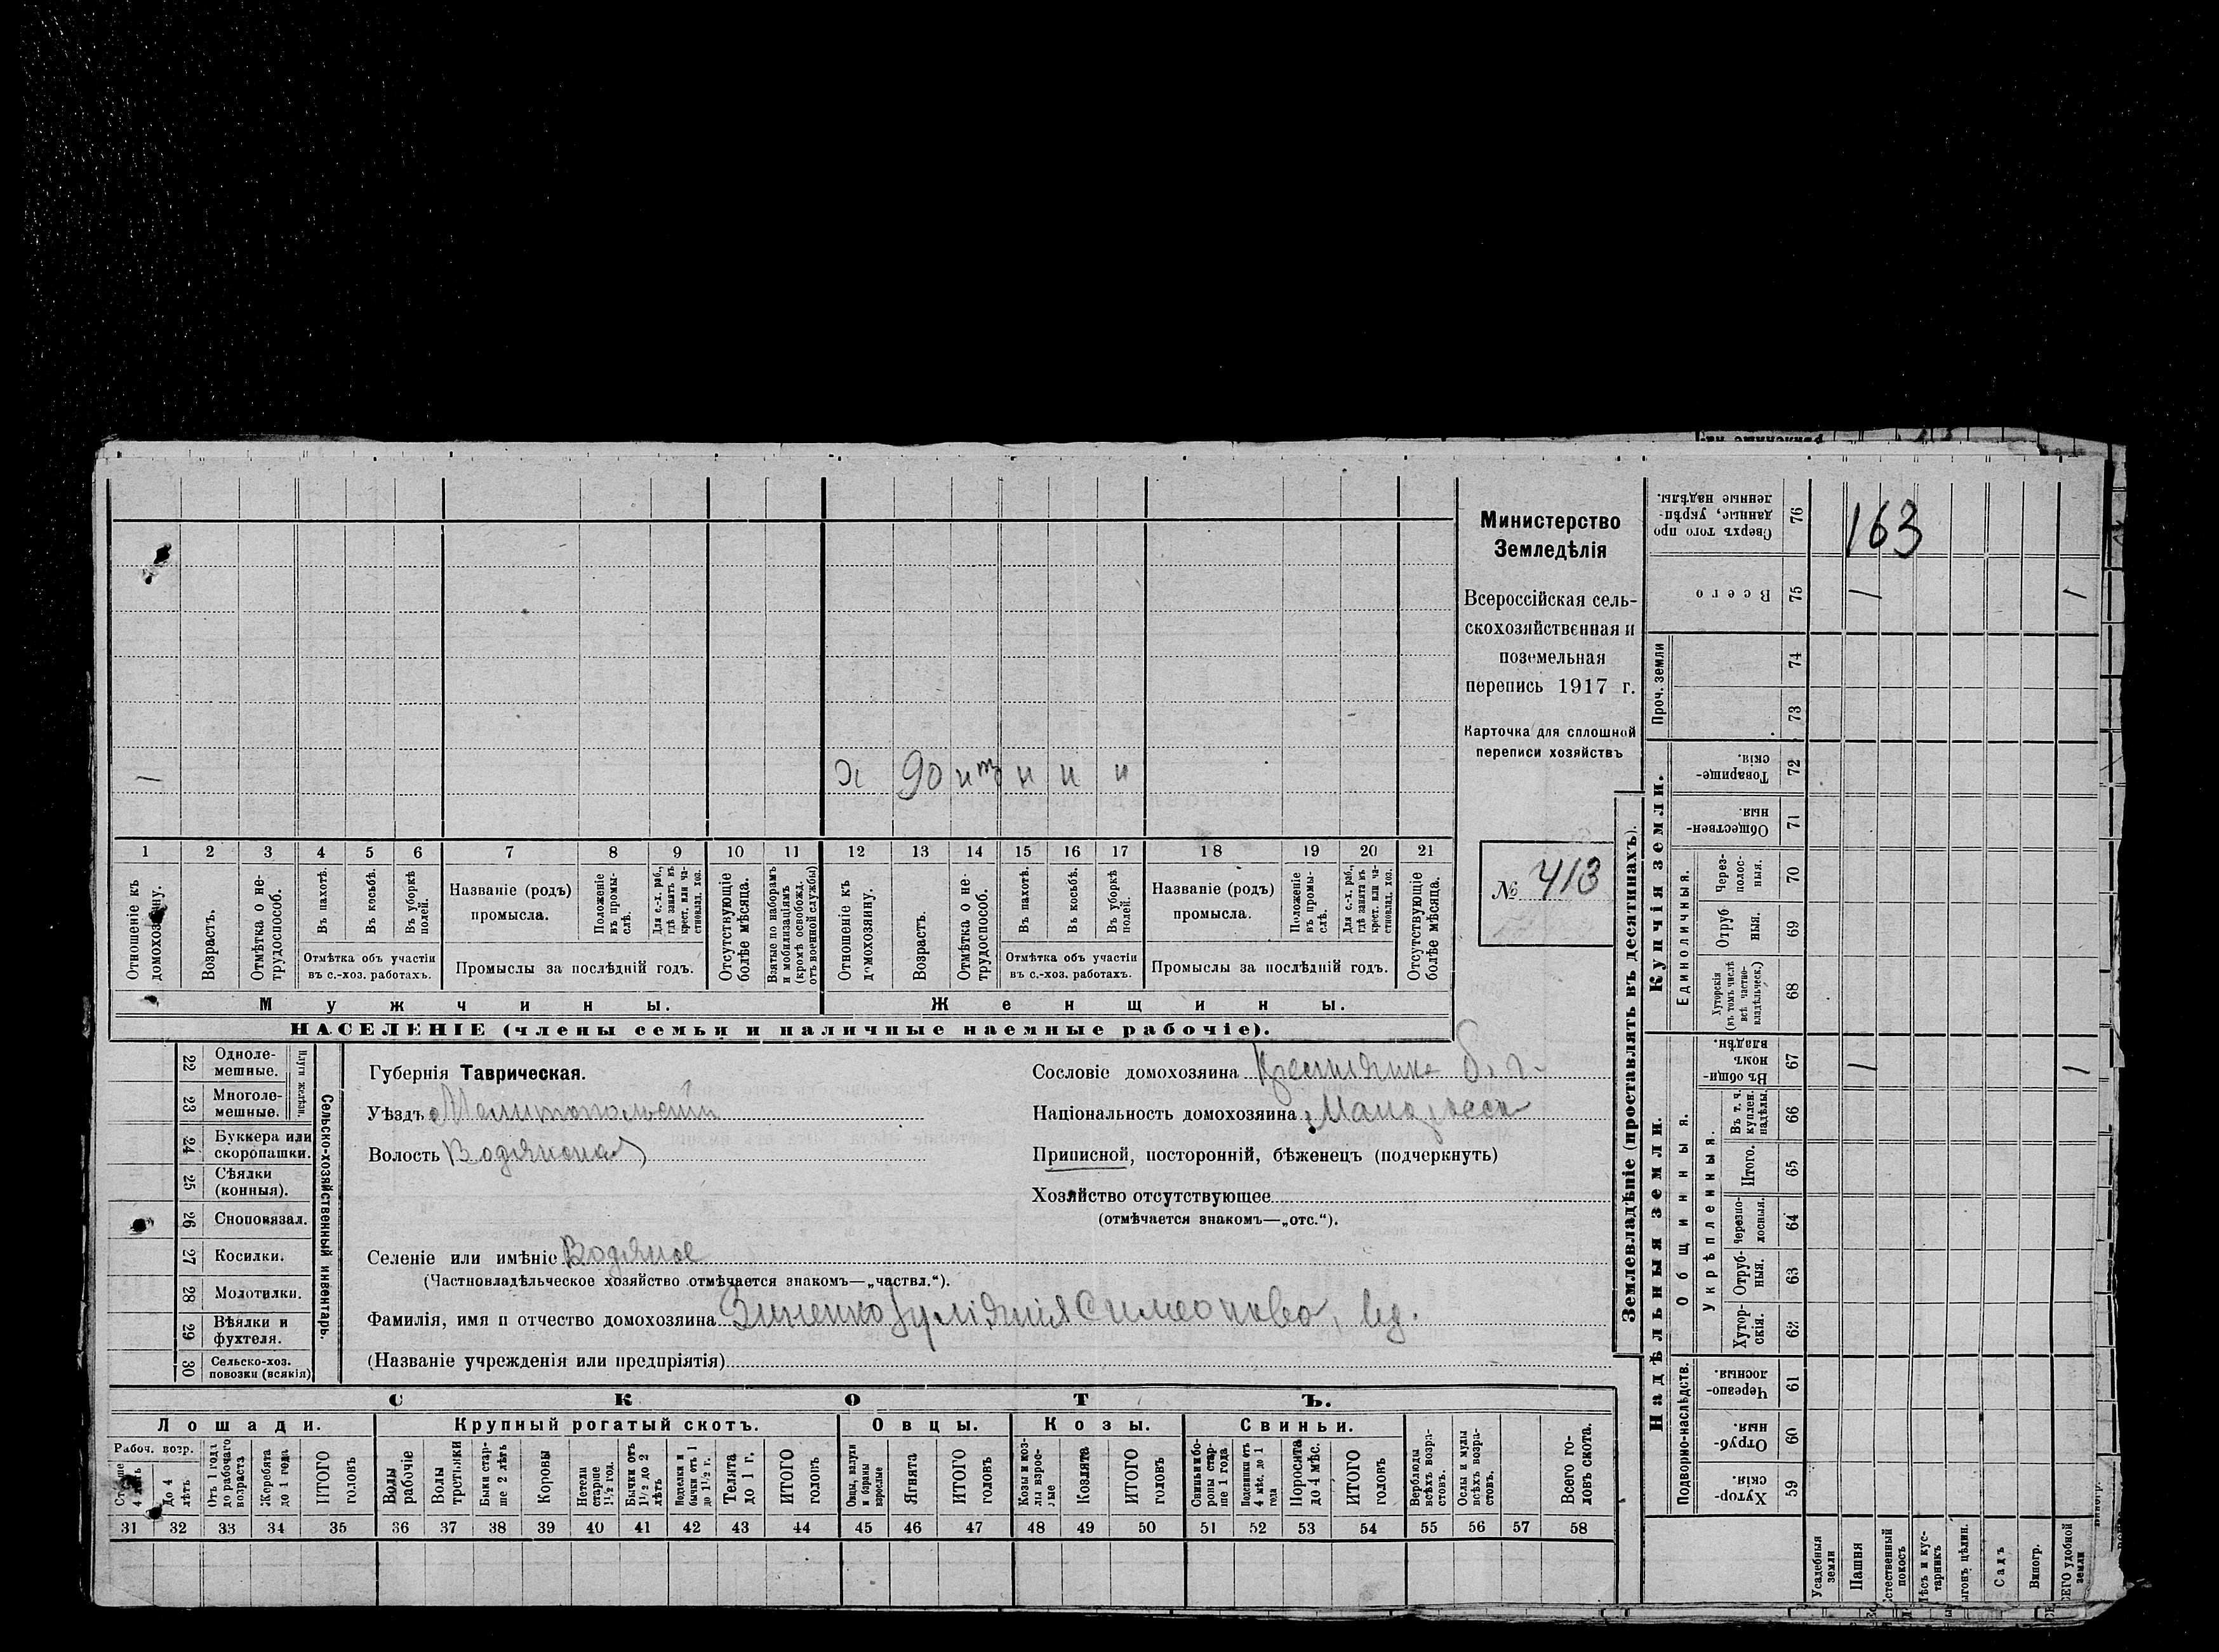 Министерство
Земледѣлія
Всероссійская сель-
скохозяйственная и
поземельная
перепись 1917 г.
Карточка для сплошной
переписи хозяйствъ
№ 413
х 90 н н н
1 2 3 4 5 6 7 8 9 10 11 12 13 14 15 16 17 18 19 20 21
Отношеніе къ домохозяину.
Возрастъ.
Отмѣтка о не-трудоспособ.
Въ пахотѣ.
Въ косьбѣ.
Въ уборкѣ полей.
Отмѣтка объ участіи
въ с.-хоз. работахъ.
Названіе (родъ)
промысла.
Положеніе въ промы-слѣ.
Для с.-х. раб., гдѣ занятъ въ крест. или ча-стновлад. хоз.
Промыслы за послѣдній годъ.
Отсутствующіе болѣе мѣсяца.
Взятые по наборамъ и мобилизаціямъ (кромѣ освобожд. отъ военной службы)
Отношеніе къ домохозяину.
Возрастъ.
Отмѣтка о не-трудоспособ.
Въ пахотѣ.
Въ косьбѣ.
Въ уборкѣ полей.
Отмѣтка объ участіи
въ с.-хоз. работахъ.
Названіе (родъ)
промысла.
Положеніе въ промы-слѣ.
Для с.-х. раб., гдѣ занята въ крест. или ча-стновлад. хоз.
Промыслы за послѣдній годъ.
Отсутствующіе болѣе мѣсяца.
Мужчины. Женщины.
НАСЕЛЕНІЕ (члены семьи и наличные наемные рабочіе).
Сельско-хозяйственный инвентарь.
Плуги желѣзн.
22 Одноле-мешные.
23 Многоле-мешные.
24 Буккера или скоропашки.
25 Сѣялки (конныя).
26 Сноповязал.
27 Косилки.
28 Молотилки.
29 Вѣялки и фухтеля.
30 Сельско-хоз. повозки (всякія)
Губернія Таврическая.
Уѣздъ Мелитопольскій
Волость Водяная
Сословіе домохозяина
Національность домохозяина
Приписной, посторонній, бѣженецъ (подчеркнуть)
Хозяйство отсутствующее
(отмѣчается знакомъ—„отс.“).
Селеніе или имѣніе Водяное
(Частновладѣльческое хозяйство отмѣчается знакомъ—„частвл.“).
Фамилія, имя и отчество домохозяина Зиненко Іуліянія Симеонова, вд.
(Названіе учрежденія или предпріятія)
СКОТЪ.
Лошади. Крупный рогатый скотъ. Овцы. Козы. Свиньи.
Рабоч. возр.
Старше 4 лѣтъ
До 4 лѣтъ
Отъ 1 года до рабочаго возраста
Жеребята до 1 года
ИТОГО головъ
Волы рабочіе
Волы третьяки
Быки стар-ше 2 лѣтъ
Коровы
Нетели старше 1½ год.
Бычки отъ 1½ до 2 лѣтъ
Подтелки и бычки отъ 1 до 1½ г.
Телята до 1 г.
ИТОГО головъ
Овцы, валухи и бараны взрослые
Ягнята
ИТОГО головъ
Козы и коз-лы взрос-лые
Козлята
ИТОГО головъ
Свиньи и бо-ровы стар-ше 1 года
Подсвинки отъ 4 мѣс. до 1 года
Поросята до 4 мѣс.
ИТОГО головъ
Верблюды всѣхъ возра-стовъ.
Ослы и мулы всѣхъ возра-стовъ.
Всего го-ловъ скота.
31 32 33 34 35 36 37 38 39 40 41 42 43 44 45 46 47 48 49 50 51 52 53 54 55 56 57 58
Землевладѣніе (проставлять въ десятинахъ).
Надѣльныя земли.
Купчія земли.
Проч. земли
Подворно-наслѣдств.
Общинныя.
Укрѣпленныя.
Единоличныя.
Сверхъ того про данные, укрѣп-ленные надѣлы. 76 163
Всего 75
74
73
Товарище-скія. 72
Обществен-ныя. 71
Через-полос-ныя. 70
Отруб ныя. 69
Хуторскія (въ томъ числѣ всѣ частно-владѣльческ.) 68
Въ общи номъ владѣн. 67
Въ т. ч. куплен. надѣлы. 66
Итого. 65
Черезпо-лосныя. 64
Отруб-ныя. 63
Хутор-скія. 62
Черезпо-лосныя. 61
Отруб-ныя. 60
Хутор-скія. 59
Усадебныя земли
Пашня
естественный покосъ
Лѣсъ и кус-тарникъ
ыгонъ цѣлин.
Садъ
Виногр.
СЕГО удобной земли